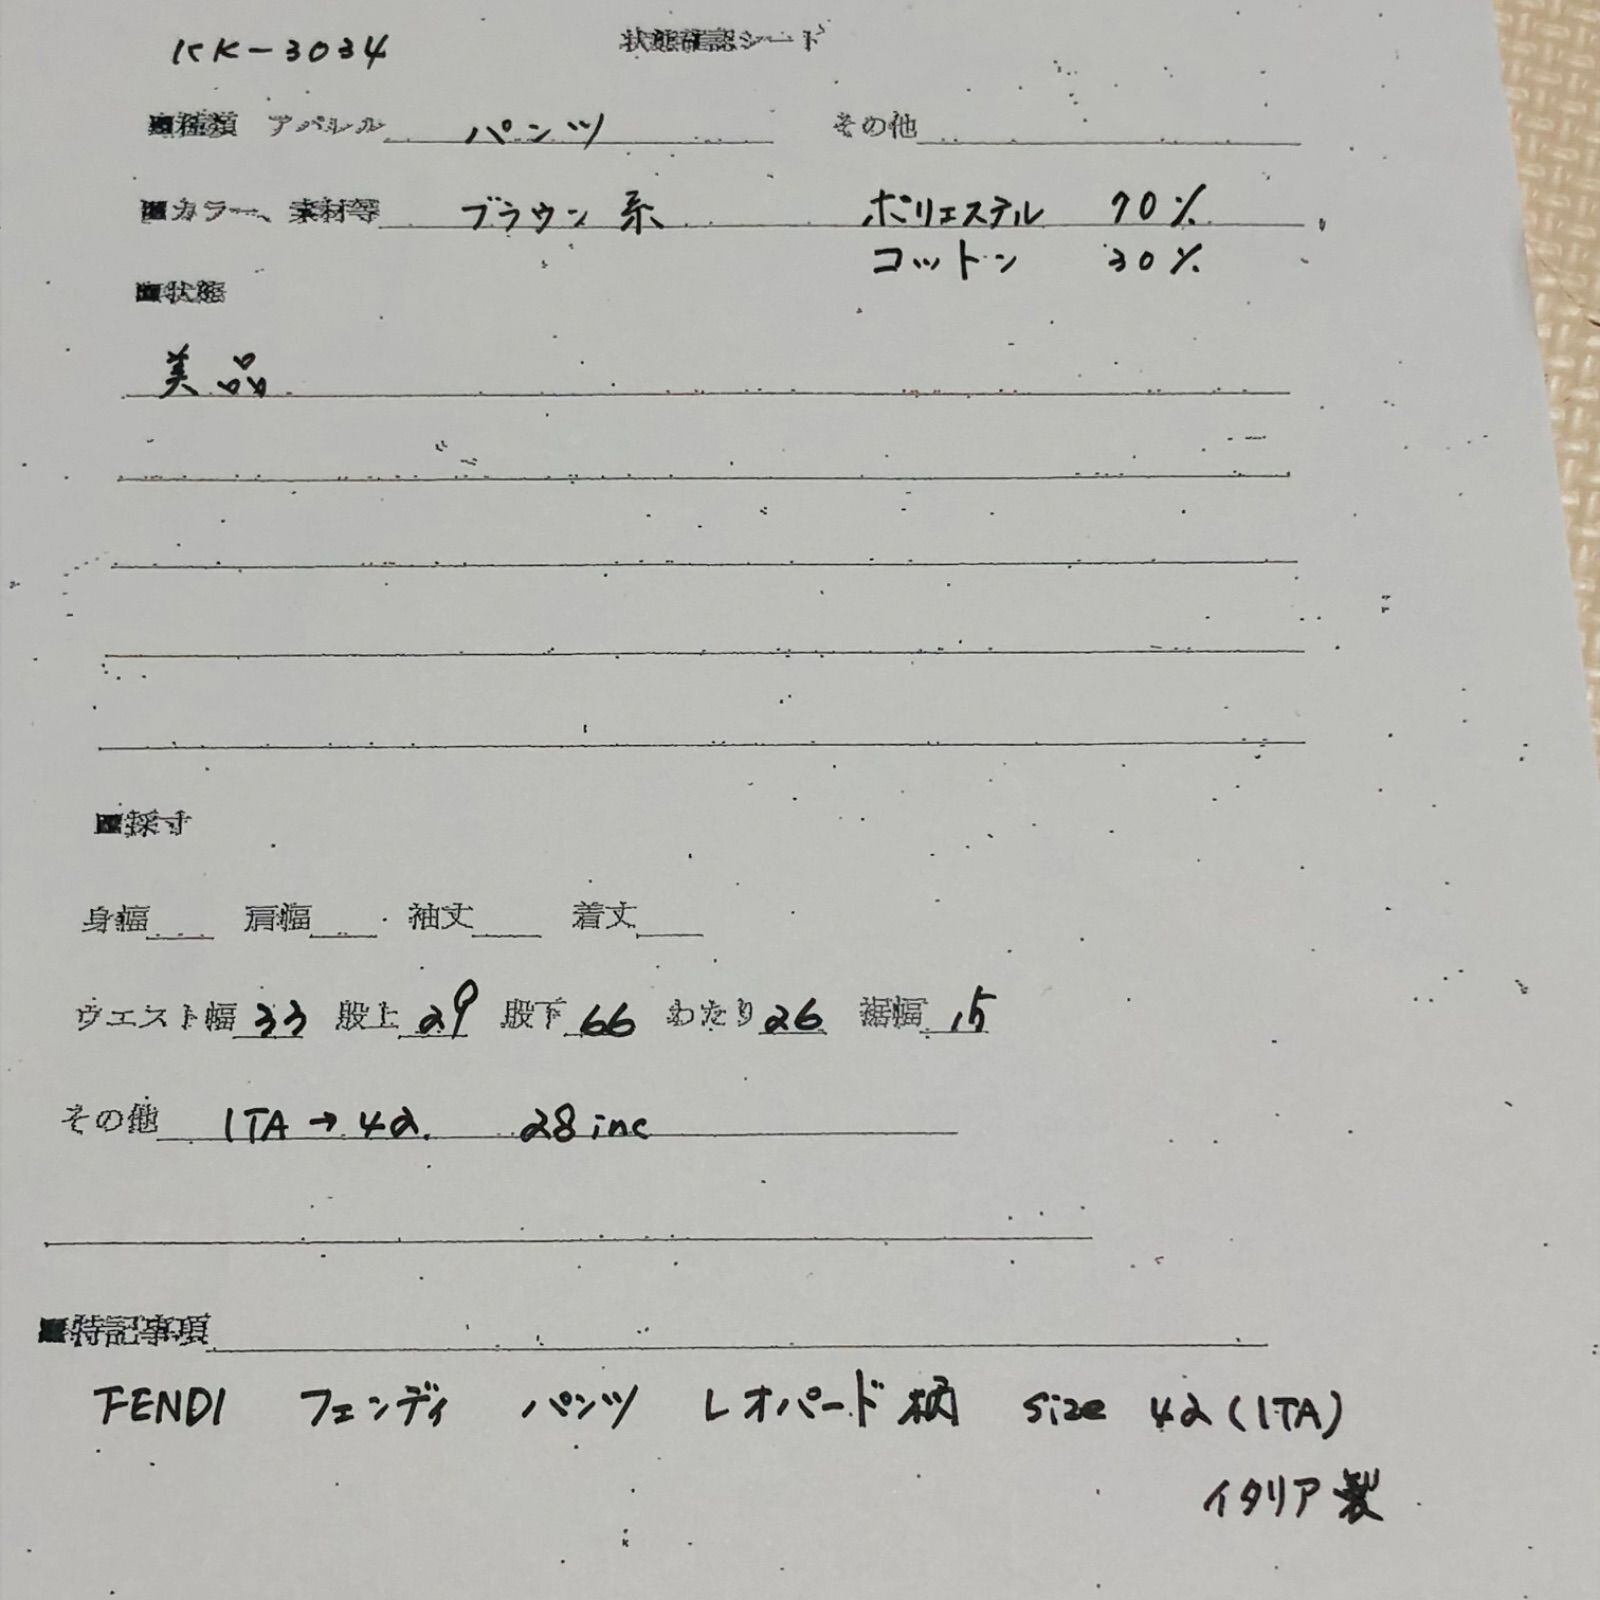 KK-3034 状態確認シート
■種類 アパレル パンツ その他
■カラー、素材等 ブラウン系 ポリエステル 70%
コットン 30%
■状態
美品
■採寸
身幅 肩幅 袖丈 着丈
ウエスト幅 33 股上 29 股下 66 わたり 26 裾幅 15
その他 ITA→42. 28inc
■特記事項
FENDI フェンディ パンツ レオパード柄 size 42(ITA)
イタリア製